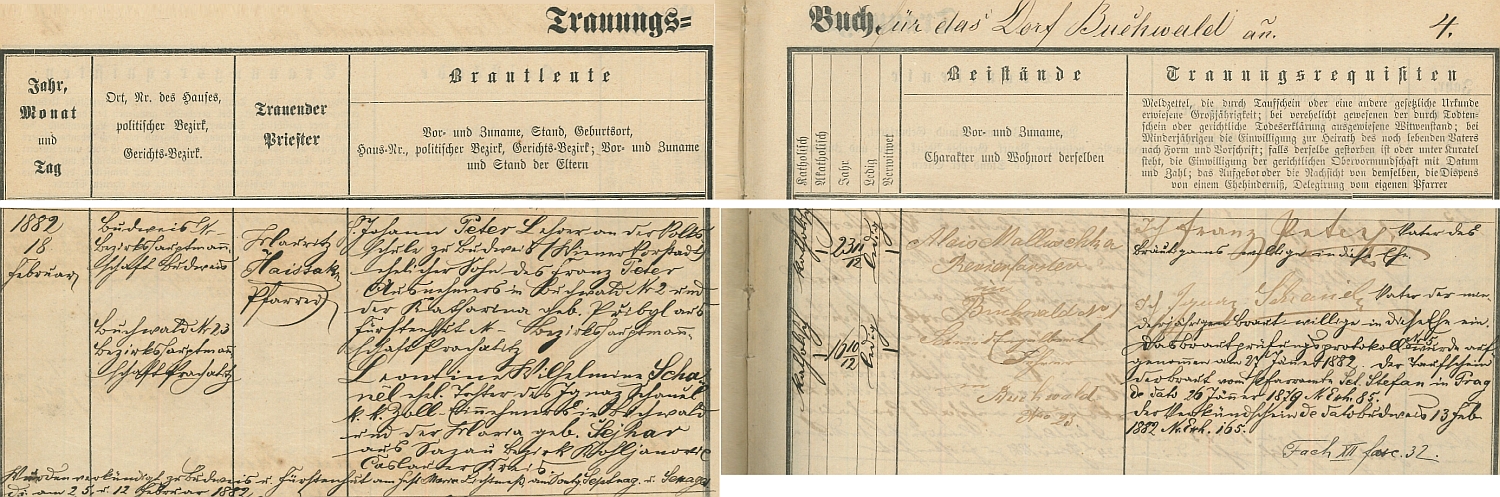 Trauungs=
Buch für das Dorf Buchwald an. 4.
Jahr,
Monat
und
Tag
Ort, Nr. des Hauses,
politischer Bezirk,
Gerichts-Bezirk.
Trauender
Priester
Brautleute
Vor- und Zuname, Stand, Geburtsort,
Haus-Nr., politischer Bezirk, Gerichts-Bezirk; Vor- und Zuname
und Stand der Eltern
Katholisch
Akatholisch
Jahr
Ledig
Verwitwet
Beistände
Vor- und Zuname,
Charakter und Wohnort derselben
Trauungsrequisiten
Meldzettel, die durch Taufschein oder eine andere gesetzliche Urkunde
erwiesene Großjährigkeit; bei verehelicht gewesenen der durch Todten-
schein oder gerichtliche Todeserklärung ausgewiesene Witwenstand; bei
Minderjährigen die Einwilligung zur Heirath des noch lebenden Vaters
nach Form und Vorschrift; falls derselbe gestorben ist oder unter Kuratel
steht, die Einwilligung der gerichtlichen Obervormundschaft mit Datum
und Zahl; das Aufgebot oder die Nachsicht von demselben, die Dispens
von einem Ehehinderniß, Delegirung vom eigenen Pfarrer
1882
18
Februar
Budweis N–
Bezirkshauptmann
schaft Budweis
Buchwald N 23
Bezirkshauptmann
schaft Prachatitz
Mauritz
Haissak
Pfarrer
Johann Peter Lehrer an der Volks
schule zu Budweis (Wiener Vorstadt)
ehelicher Sohn des Franz Peter
Ausnehmers in Buchwald N 2 und
der Katharina geb. Přibyl aus
Fürstenhut N – Bezirkshauptmann
schaft Prachatitz
Leontine Wilhelmine Scha
nel ehel. Tochter des Ignaz Schanel
k. k. Zoll-Einnehmers in Buchwald
und der Maria geb. Sejkar
aus Sazau Bezirk
Časlauer Kreis
Wurden verkündigt zu Budweis u. Fürstenhut am Fest Maria Lichtmeß, am Sontg Septuag. u. Sexages
d. i. am 2 5. u 12 Februar 1882.
katholisch
23
11/12
ledig
katholisch
16
10/12
ledig
Alois
Revierförster
in
Buchwald No 1
in
Buchwald
Nro 23.
Ich Franz Peter, Vater des
Bräutigams willige in diese Ehe.
Ich Ignaz Schanel, Vater der min
derjährigen Braut willige in diese Ehe ein.
Das Brautprüfungsprotokoll wurde auf
genommen am 27 Jäner 1882. Der Taufschein
der Braut vom Pfarramte Sct. Stefan in Prag
de dato 26 Jäner 1879 N. Exh. 85.
der Verkündschein de dato Budweis 13 Feb
1882 N. Exh. 165.
Fach XII fasc. 32.